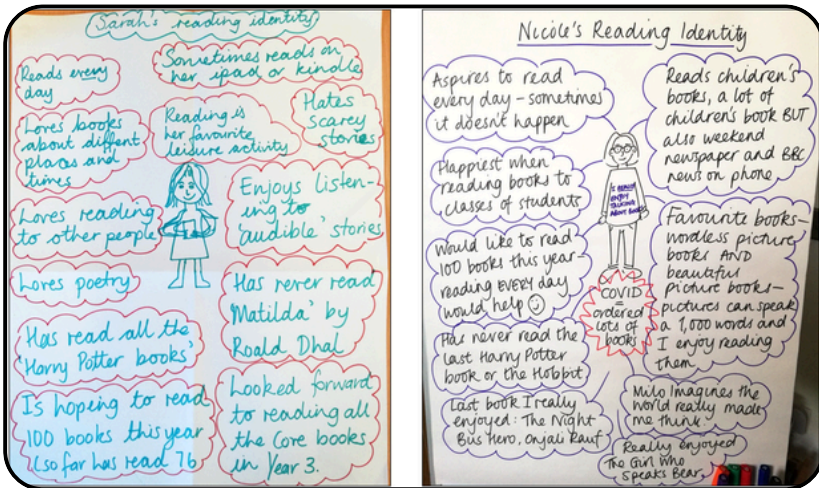 Sarah's reading identity
Reads every
day
Sometimes reads on
her ipad or kindle
Loves books
about diffent
places and
times
Reading is
her favourite
leisure activity
Hates
scarey
stories
Loves reading
to other people
Enjoys listen-
ing to
'audible' stories
Loves poetry
Has never read
'Matilda' by
Roald Dhal
Has read all the
'Harry Potter books'
Is hoping to read
100 books this year
(so far has read 76
Looked forward
to reading all
the Core books
in Year 3.
Nicole's Reading Identity
Aspires to read
every day - sometimes
it doesn't happen
Reads children's
books, a lot of
children's book BUT
also weekend
newspaper and BBC
news on phone
Happiest when
reading books to
classes of students
I REALLY
ENJOY
TALKING
ABOUT BOOKS
Would like to read
100 books this year-
reading EVERY day
would help
Favourite books-
wordless picture
books AND
beautiful
picture books-
pictures can speak
a 1,000 words and
I enjoy reading
them.
COVID
=
ordered
lots of
books
Has never read the
last Harry Potter
book or the Hobbit
Last book I really
enjoyed: The Night
Bus Hero, Onjali Rauf
Milo Imagines the
world really made
me think.
Really enjoyed
The Girl Who
Speaks Bear.